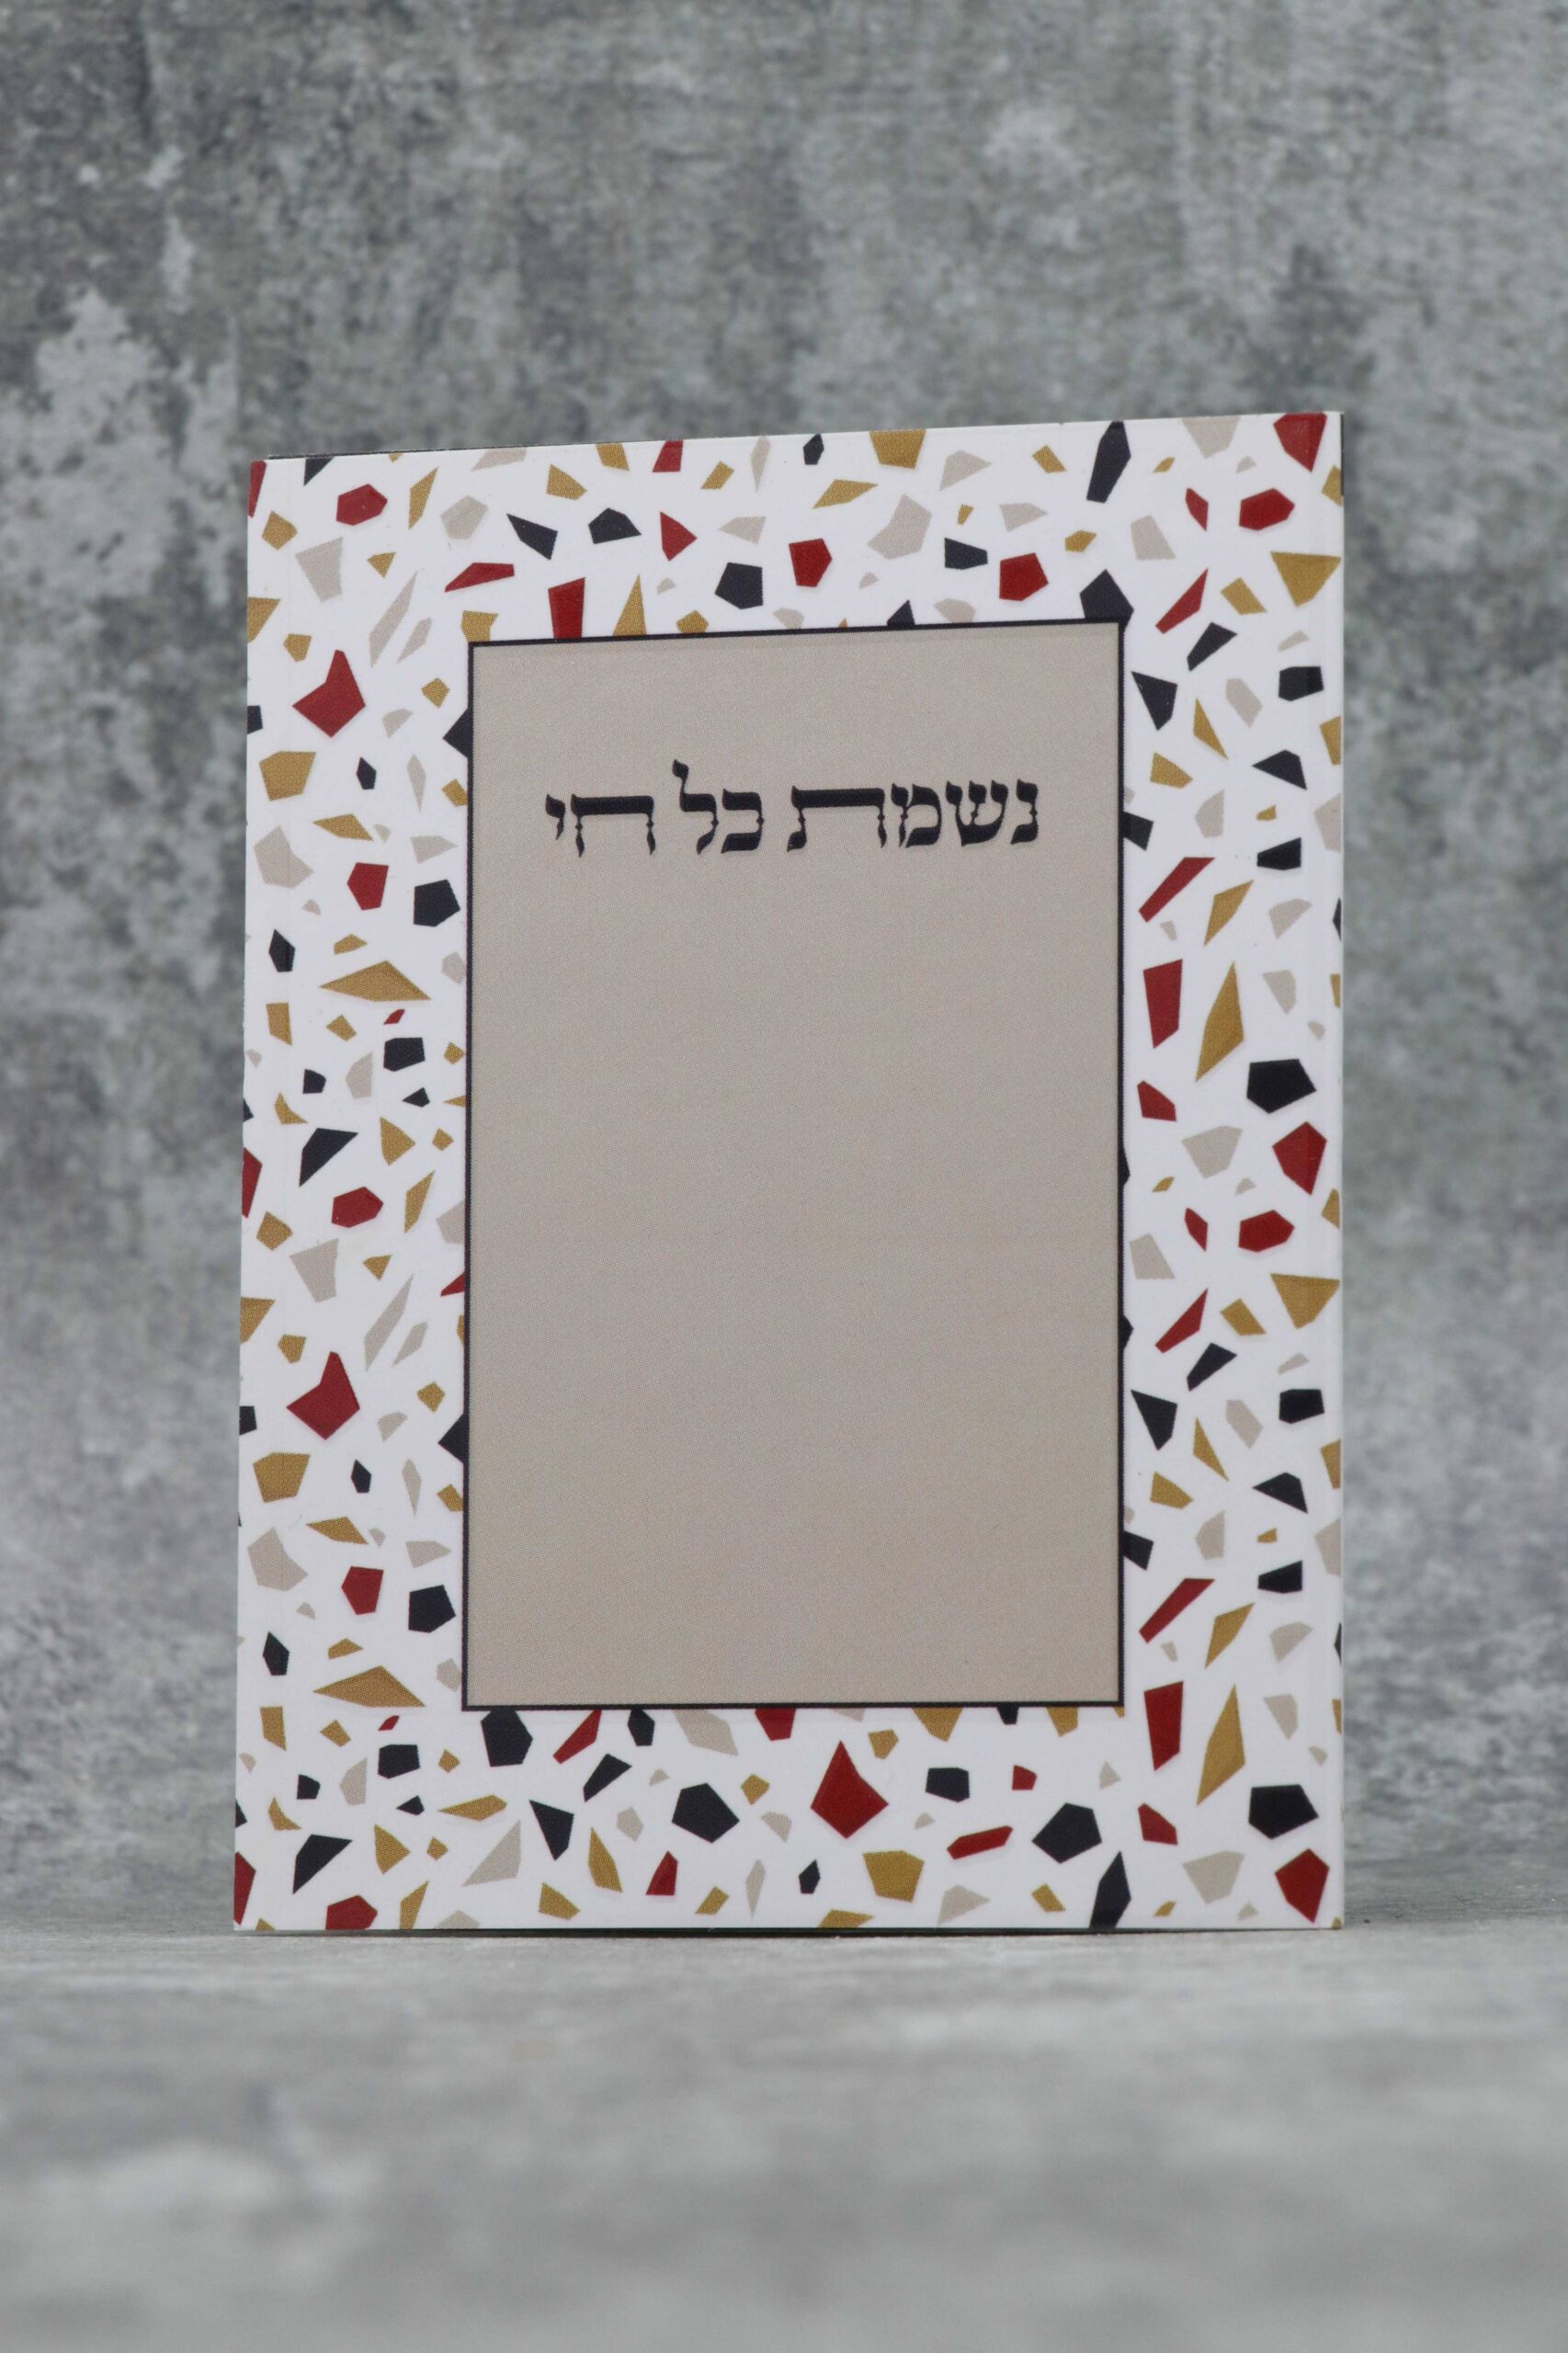 נשמת כל חי